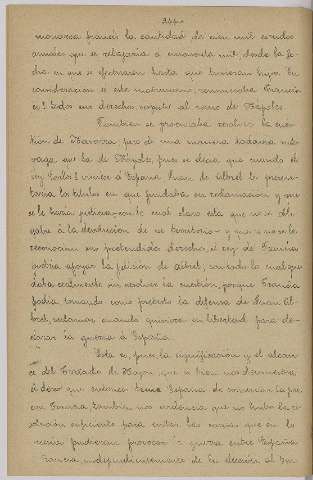 monarca francés la cantidad de cien mil escudos
anuales que se rebajaría a cincuenta mil, desde la fe-
cha en que se efectuasen hasta que tuvieran hijos. En
consideración a este matrimonio, renunciaba Francis-
co I todos sus derechos respecto al reino de Nápoles.
También se procuraba resolver la cues-
tión de Navarra pero de una manera todavía más
vaga que la de Nápoles, pues se decía que cuando el
rey Carlos I viniese a España Juan de Albret le presen-
taría los títulos en que fundaba su reclamación y que
se le haría justicia, con lo cual claro está que no se obli-
gaba a la devolución de su territorio y que si no se le
reconocían sus pretendidos derechos, el rey de Francia
podría apoyar la petición de Albret, con todo lo cual que-
daba realmente sin resolver la cuestión, porque Francia
podía tomando como pretexto la defensa de Juan Al-
bret, estarían cuando quisiera en libertad para de-
clarar la guerra a España.
Esta es, pues, la significación y el alcan-
ce del Tratado de Noyon que si bien nos demuestra
el deseo que entonces tenía España de conservar la paz
con Francia también nos evidencia que no hubo la so-
lución suficiente para evitar las causas que en lo
sucesivo pudieran provocar la guerra entre España
y Francia independientemente de la elección al Im-